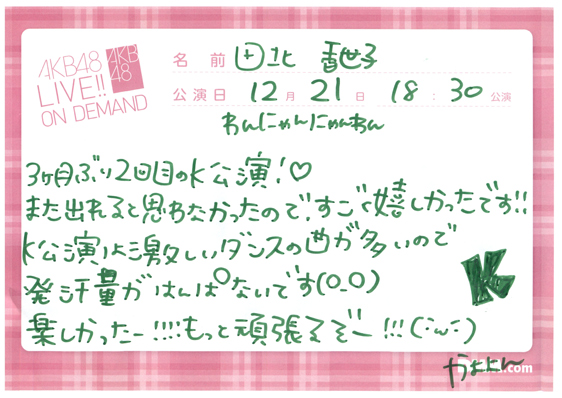 AKB48
LIVE!!
ON DEMAND
AKB
48
名前 田北 香世子
公演日 12月 21日 18:30公演
わんにゃんにゃんわん
3ヶ月ぶり2回目のK公演!♡
また出れると思わなかったので、すごく嬉しかったです!!
K公演は激しいダンスの曲が多いので
発汗量がはんぱないです(O_O)
楽しかったー!!!!もっと頑張るぞー!!!(･ω･)
K
かよよん
.com